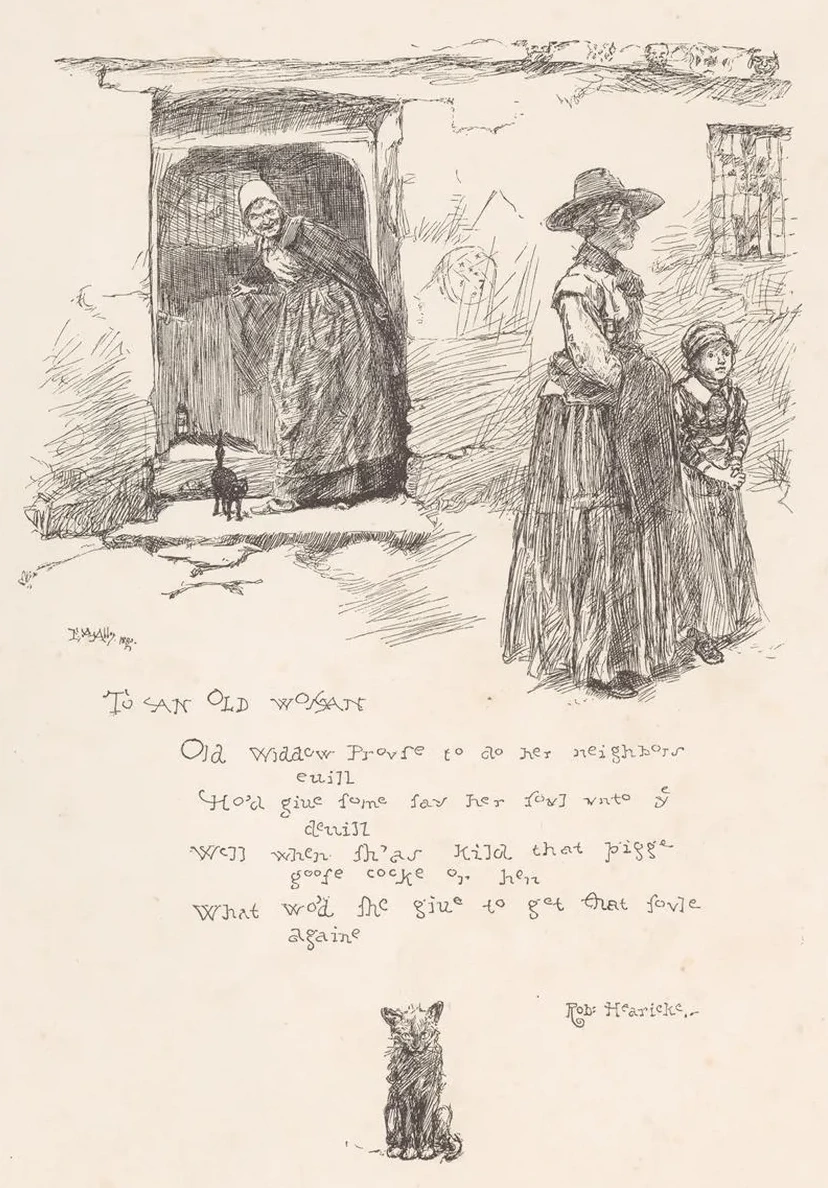 To an Old Woman
Old Widdow Provſe to do her neighbors
euill
Wo'd giue ſome ſay her ſovl vnto yᵉ
deuill
Well when ſh'as kild that pigge
gooſe cocke or hen
What wo'd ſhe giue to get that ſovle
againe
Rob: Hearicke.